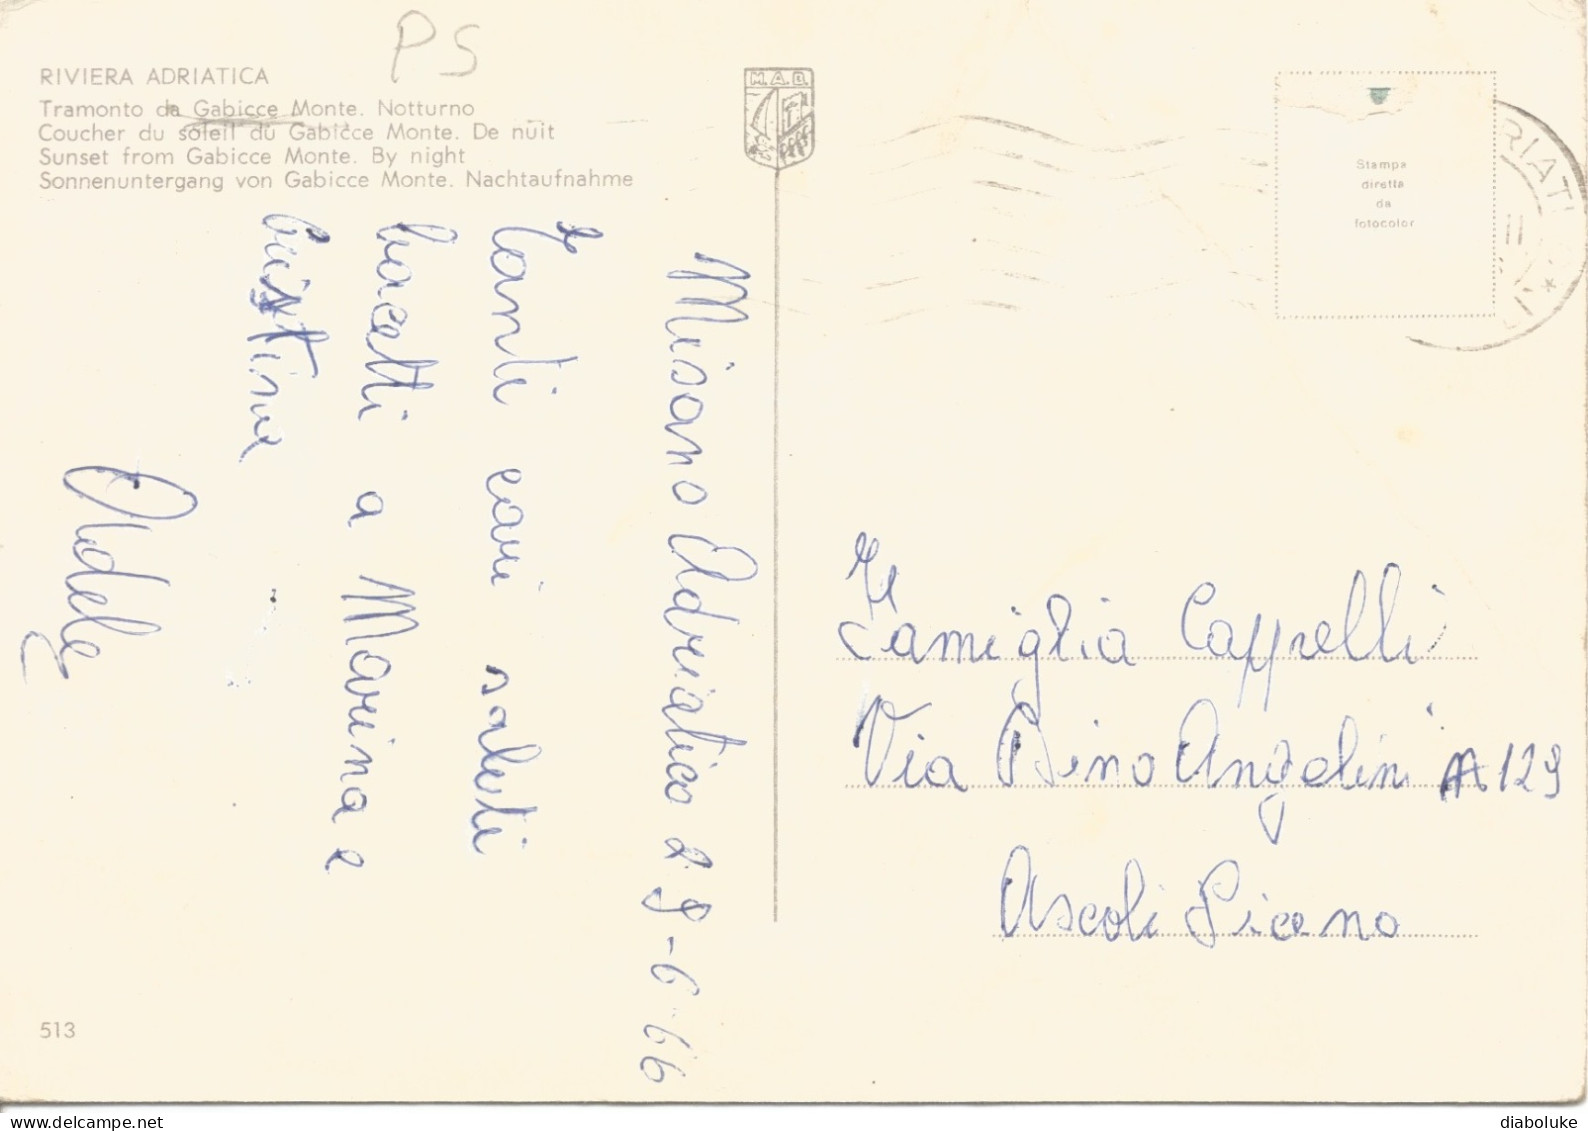 PS
RIVIERA ADRIATICA
Tramonto da Gabicce Monte. Notturno
Coucher du soleil du Gabicce Monte. De nuit
Sunset from Gabicce Monte. By night
Sonnenuntergang von Gabicce Monte. Nachtaufnahme
M.A.B.
Stampa
diretta
da
fotocolor
RIATI
II
Misano Adriatico 29-6-66
Tanti cari saluti
bacetti a Marina e
Cristina
Adele
Famiglia Cappelli
Via Pino Angelini 129
Ascoli Piceno
513
diaboluke